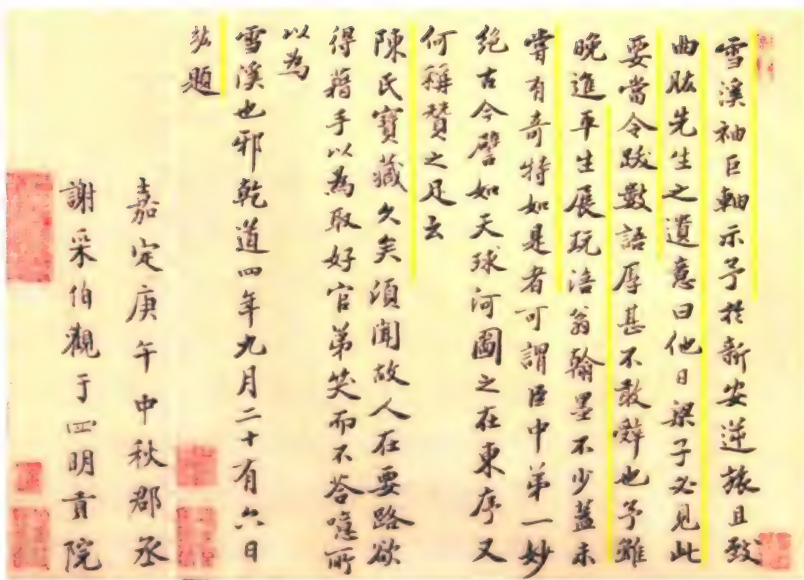 雪溪袖巨軸示予於新安逆旅且致
曲肱先生之遺意曰他日梁子必見此
要當令跋數語辱甚不敢辤也予雖
晚進平生展玩涪翁翰墨不少蓋未
嘗有奇特如是者可謂臣中第一妙
絶古今譬如天球河圖之在東序又
何稱贊之足云
陳氏寶藏久矣須聞故人在要路欲
得藉手以為取好官第笑而不荅噫所
以為
雪溪也邪乾道四年九月二十有六日
題
嘉定庚午中秋郡丞
謝采伯觀于四明貢院